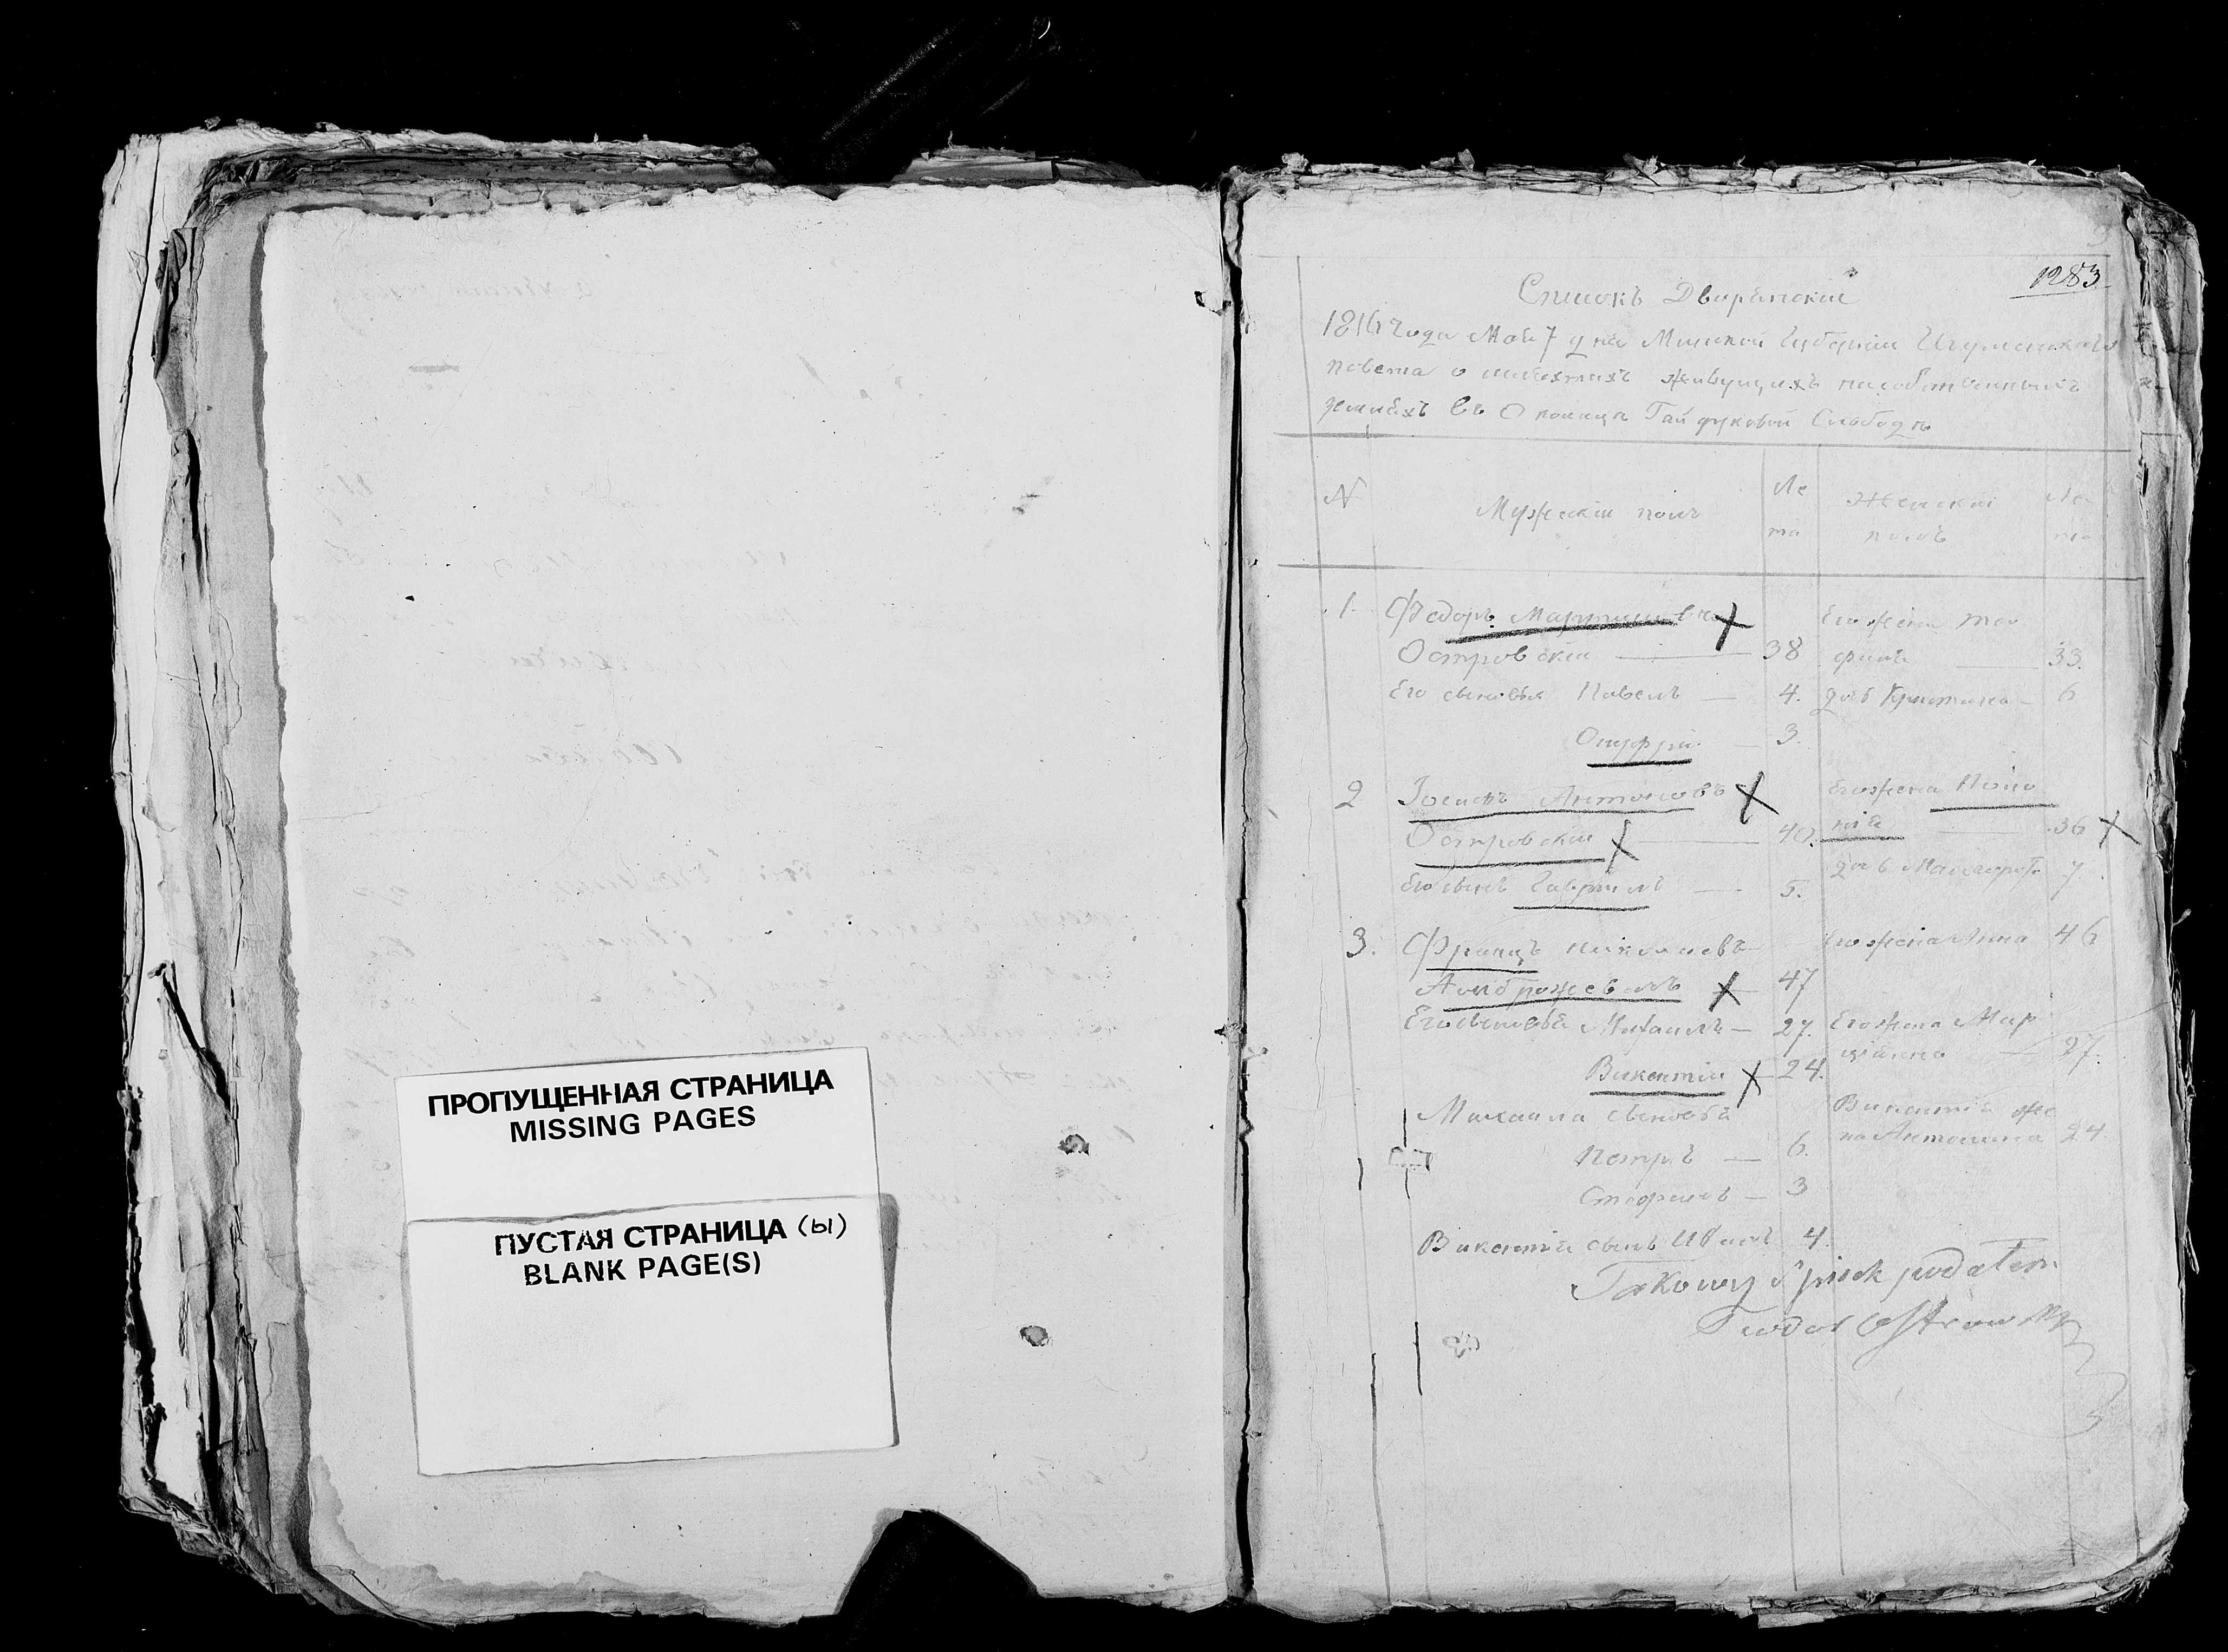 ПРОПУЩЕННАЯ СТРАНИЦА
MISSING PAGES
ПУСТАЯ СТРАНИЦА (ы)
BLANK PAGE(S)
1283
Списокъ Дворянскій
1816 года Мая 7 дня Минской Губерніи Игуменскаго
повета о шляхтахъ живущихъ на собственныхъ
земляхъ въ Околица Гайдуковой Слободѣ
N Мужескій полъ Ле та Женскій полъ Ле та
1. Федоръ Мартиновъ Его жена Тео
Островскій 38 филя 33.
Его сыновья Павелъ 4. дочь Кристина 6
Онуфрій 3.
2 Іосифъ Антоновъ Его жена Поло
Островскій 40. нія 36
Его сынъ Гавріилъ 5. дочь 7
3. Францъ Николаевъ Его жена Анна 46
47
Его сыновья Михаилъ 27. Его жена Мар
Викентій 24. 27.
Михаила сыновья Викентія же
Петръ 6. на Антонина 24
Стефанъ 3
Викентія сынъ Иванъ 4.
Takowy Spisek podałem
Teodor Ostrowski